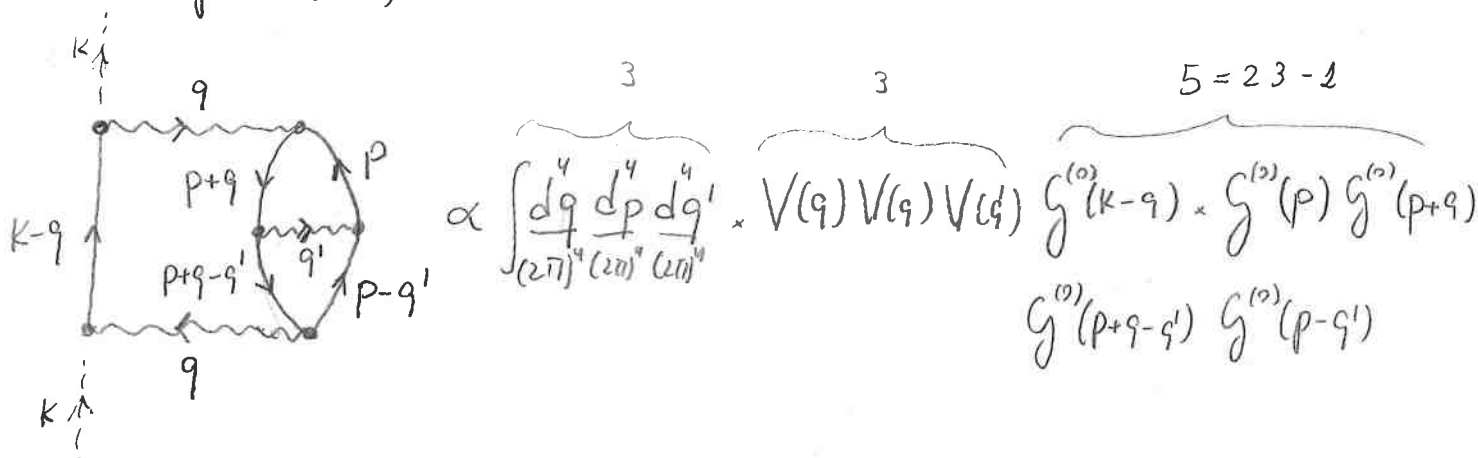 3
3
5 = 2 3 - 1
k
q
p+q
p
k-q
q'
p+q-q'
p-q'
q
k
∝ ∫ d⁴q/(2π)⁴ d⁴p/(2π)⁴ d⁴q'/(2π)⁴ × V(q) V(q) V(q') G⁽⁰⁾(k-q) × G⁽⁰⁾(p) G⁽⁰⁾(p+q)
G⁽⁰⁾(p+q-q') G⁽⁰⁾(p-q')